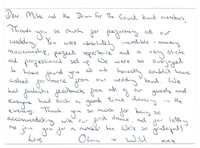 Dear Mike and the Down For The Count band members,
Thank you so much for performing at our
wedding. You were absolutely incredible - amazing
musicianship, perfect repertoire and a very slick
and professional set up. We were so overjoyed
to have found you all and honestly couldn't have
asked for more from our wedding band. We've
had fantastic feedback from all of our guests and
everyone had such a good time dancing in the
evening. Thank you so much for being so
accommodating with our first dance, and for letting
me join you for a number too. We're so grateful!
Love, Olivia & Will xxx